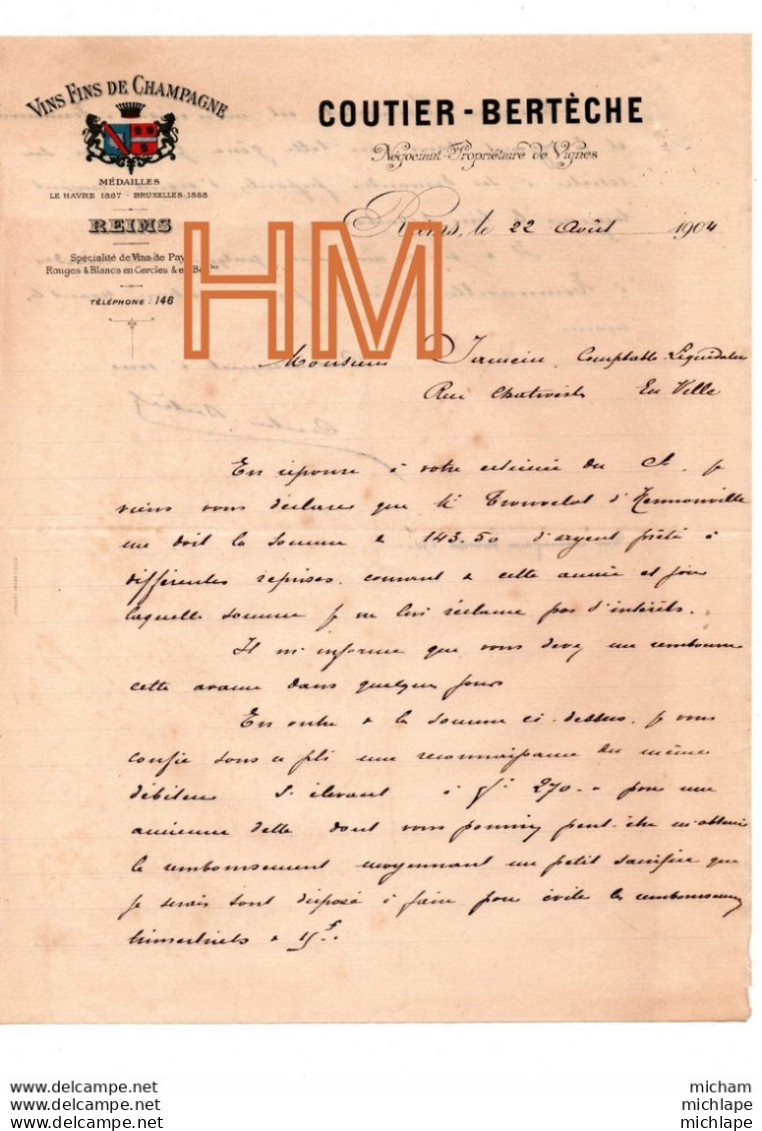 VINS FINS DE CHAMPAGNE
MÉDAILLES
LE HAVRE 1887 - BRUXELLES 1888
REIMS
Spécialité de Vins de Pay
Rouges & Blancs en Cercles & en
TÉLÉPHONE : 146
COUTIER - BERTÈCHE
Négociant-Propriétaire de Vignes
Reims, le 22 Août 1904
HM
Monsieur Jamein, Comptable Liquidateur
Rue En Ville
En réponse à votre estimée du Ct, je
viens vous déclarer que Mr d'Hermonville
me doit la somme de 143.50 d'argent prêté à
différentes reprises, courant de cette année et pour
laquelle somme je ne lui réclame pas d'intérêts.
Il m'informe que vous devez me rembourser
cette avance dans quelques jours
En outre de la somme ci-dessus, je vous
confie sous ce pli une reconnaissance du même
débiteur s'élevant à fr 270 " pour une
ancienne dette dont vous pourriez peut-être m'obtenir
le remboursement moyennant un petit sacrifice que
je serais tout disposé à faire pour éviter les remboursements
trimestriels de 15 f.
www.delcampe.net
www.delcampe.net
www.delcampe.net
micham
michlape
michlape